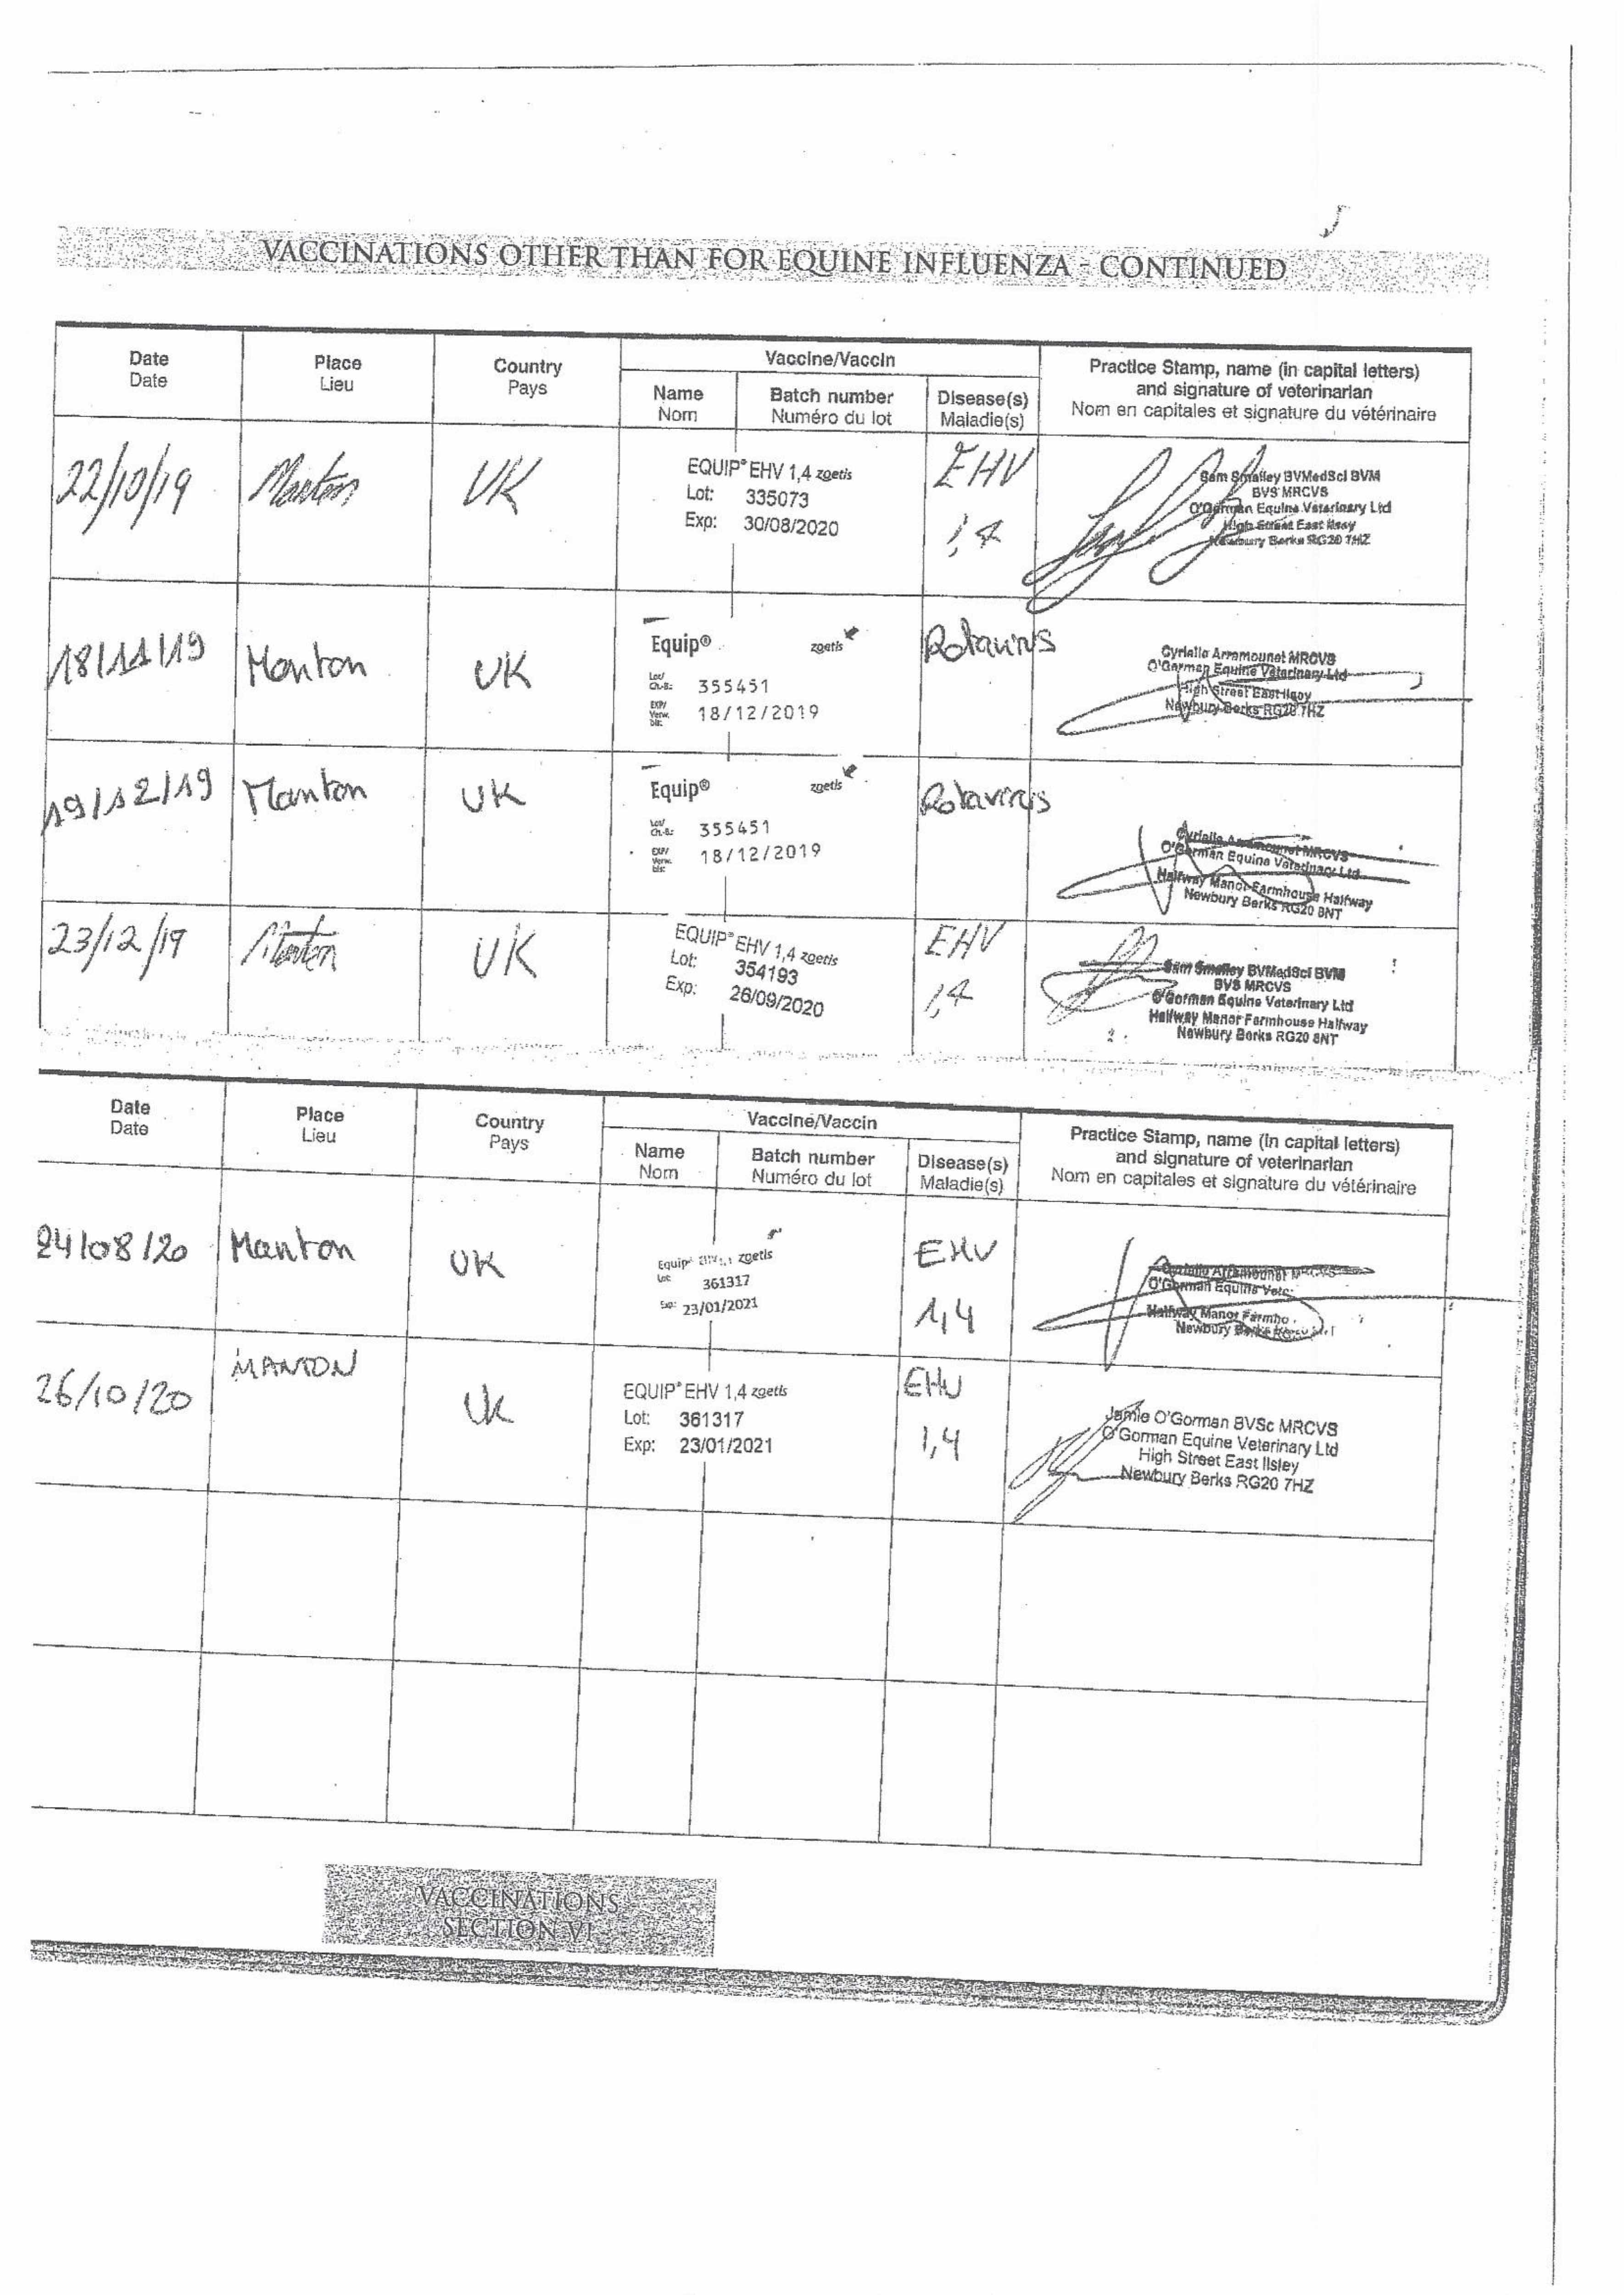 VACCINATIONS OTHER THAN FOR EQUINE INFLUENZA - CONTINUED
Date
Date
Place
Lieu
Country
Pays
Vaccine/Vaccin
Name
Nom
Batch number
Numéro du lot
Disease(s)
Maladie(s)
Practice Stamp, name (in capital letters)
and signature of veterinarian
Nom en capitales et signature du vétérinaire
22/10/19
Manton
UK
EQUIP® EHV 1,4 zoetis
Lot: 335073
Exp: 30/08/2020
EHV
1,4
Sam Smalley BVMedSci BVM
BVS MRCVS
O'Gorman Equine Veterinary Ltd
High Street East Ilsley
Newbury Berks RG20 7HZ
18/11/19
Manton
UK
Equip® zoetis
Lot/
Ch.-B.:
355451
EXP/
Verw.
bis:
18/12/2019
Rotavirus
Cyrielle Arramounet MRCVS
O'Gorman Equine Veterinary Ltd
High Street East Ilsley
Newbury Berks RG20 7HZ
19/12/19
Manton
UK
Equip® zoetis
Lot/
Ch.-B.:
355451
EXP/
Verw.
bis:
18/12/2019
Rotavirus
Cyrielle Arramounet MRCVS
O'Gorman Equine Veterinary Ltd
Halfway Manor Farmhouse Halfway
Newbury Berks RG20 8NT
23/12/19
Manton
UK
EQUIP® EHV 1,4 zoetis
Lot: 354193
Exp: 26/09/2020
EHV
1,4
Sam Smalley BVMedSci BVM
BVS MRCVS
O'Gorman Equine Veterinary Ltd
Halfway Manor Farmhouse Halfway
Newbury Berks RG20 8NT
Date
Date
Place
Lieu
Country
Pays
Vaccine/Vaccin
Name
Nom
Batch number
Numéro du lot
Disease(s)
Maladie(s)
Practice Stamp, name (in capital letters)
and signature of veterinarian
Nom en capitales et signature du vétérinaire
24/08/20
Manton
UK
Equip® EHV 1,4 zoetis
Lot: 361317
Exp: 23/01/2021
EHV
1,4
Cyrielle Arramounet MRCVS
O'Gorman Equine
Halfway Manor Farmho
Newbury Berks
26/10/20
MANTON
UK
EQUIP® EHV 1,4 zoetis
Lot: 361317
Exp: 23/01/2021
EHV
1,4
Jamie O'Gorman BVSc MRCVS
O'Gorman Equine Veterinary Ltd
High Street East Ilsley
Newbury Berks RG20 7HZ
VACCINATIONS
SECTION VI